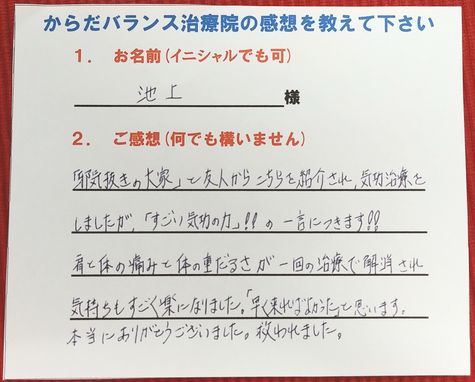 からだバランス治療院の感想を教えて下さい
1. お名前(イニシャルでも可)
池上様
2. ご感想(何でも構いません)
「邪気抜きの大家」と友人からこちらを紹介され、気功治療を
しましたが、「すごい気功の力」!!の一言につきます!!
肩と体の痛みと体の重だるさが一回の治療で解消され
気持ちもすごく楽になりました。「早く来ればよかった」と思います。
本当にありがとうございました。救われました。